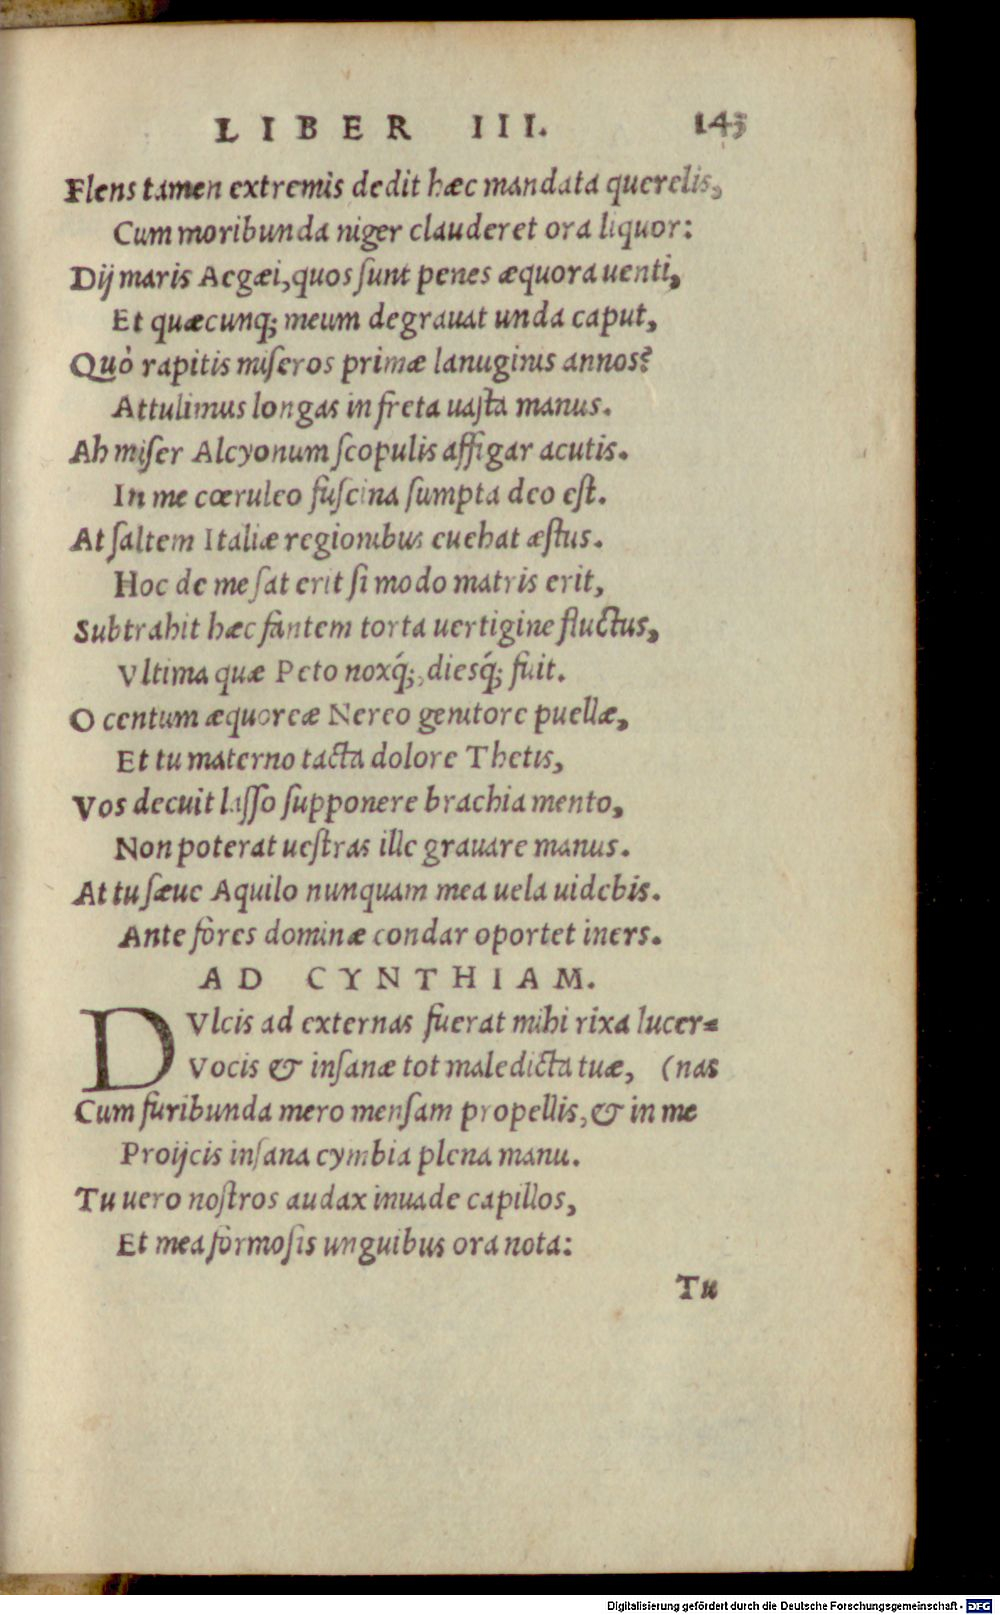 LIBER III. 143
Flens tamen extremis dedit hæc mandata querelis,
Cum moribunda niger clauderet ora liquor:
Dij maris Aegæi, quos ſunt penes æquora uenti,
Et quæcunq; meum degrauat unda caput,
Quò rapitis miſeros primæ lanuginis annos?
Attulimus longas in freta uaſta manus.
Ah miſer Alcyonum ſcopulis affigar acutis.
In me cœruleo fuſcina ſumpta deo eſt.
At ſaltem Italiæ regionibus euehat æſtus.
Hoc de me ſat erit ſi modo matris erit,
Subtrahit hæc fantem torta uertigine fluctus,
Vltima quæ Peto noxq́;, diesq́; fuit.
O centum æquoreæ Nereo genitore puellæ,
Et tu materno tacta dolore Thetis,
Vos decuit laſſo ſupponere brachia mento,
Non poterat ueſtras ille grauare manus.
At tu ſæue Aquilo nunquam mea uela uidebis.
Ante fores dominæ condar oportet iners.
AD CYNTHIAM.
DVlcis ad externas fuerat mihi rixa lucer=
Vocis & inſanæ tot maledicta tuæ, (nas
Cum furibunda mero menſam propellis, & in me
Proijcis inſana cymbia plena manu.
Tu uero noſtros audax inuade capillos,
Et mea formoſis unguibus ora nota:
Tu
Digitalisierung gefördert durch die Deutsche Forschungsgemeinschaft - DFG